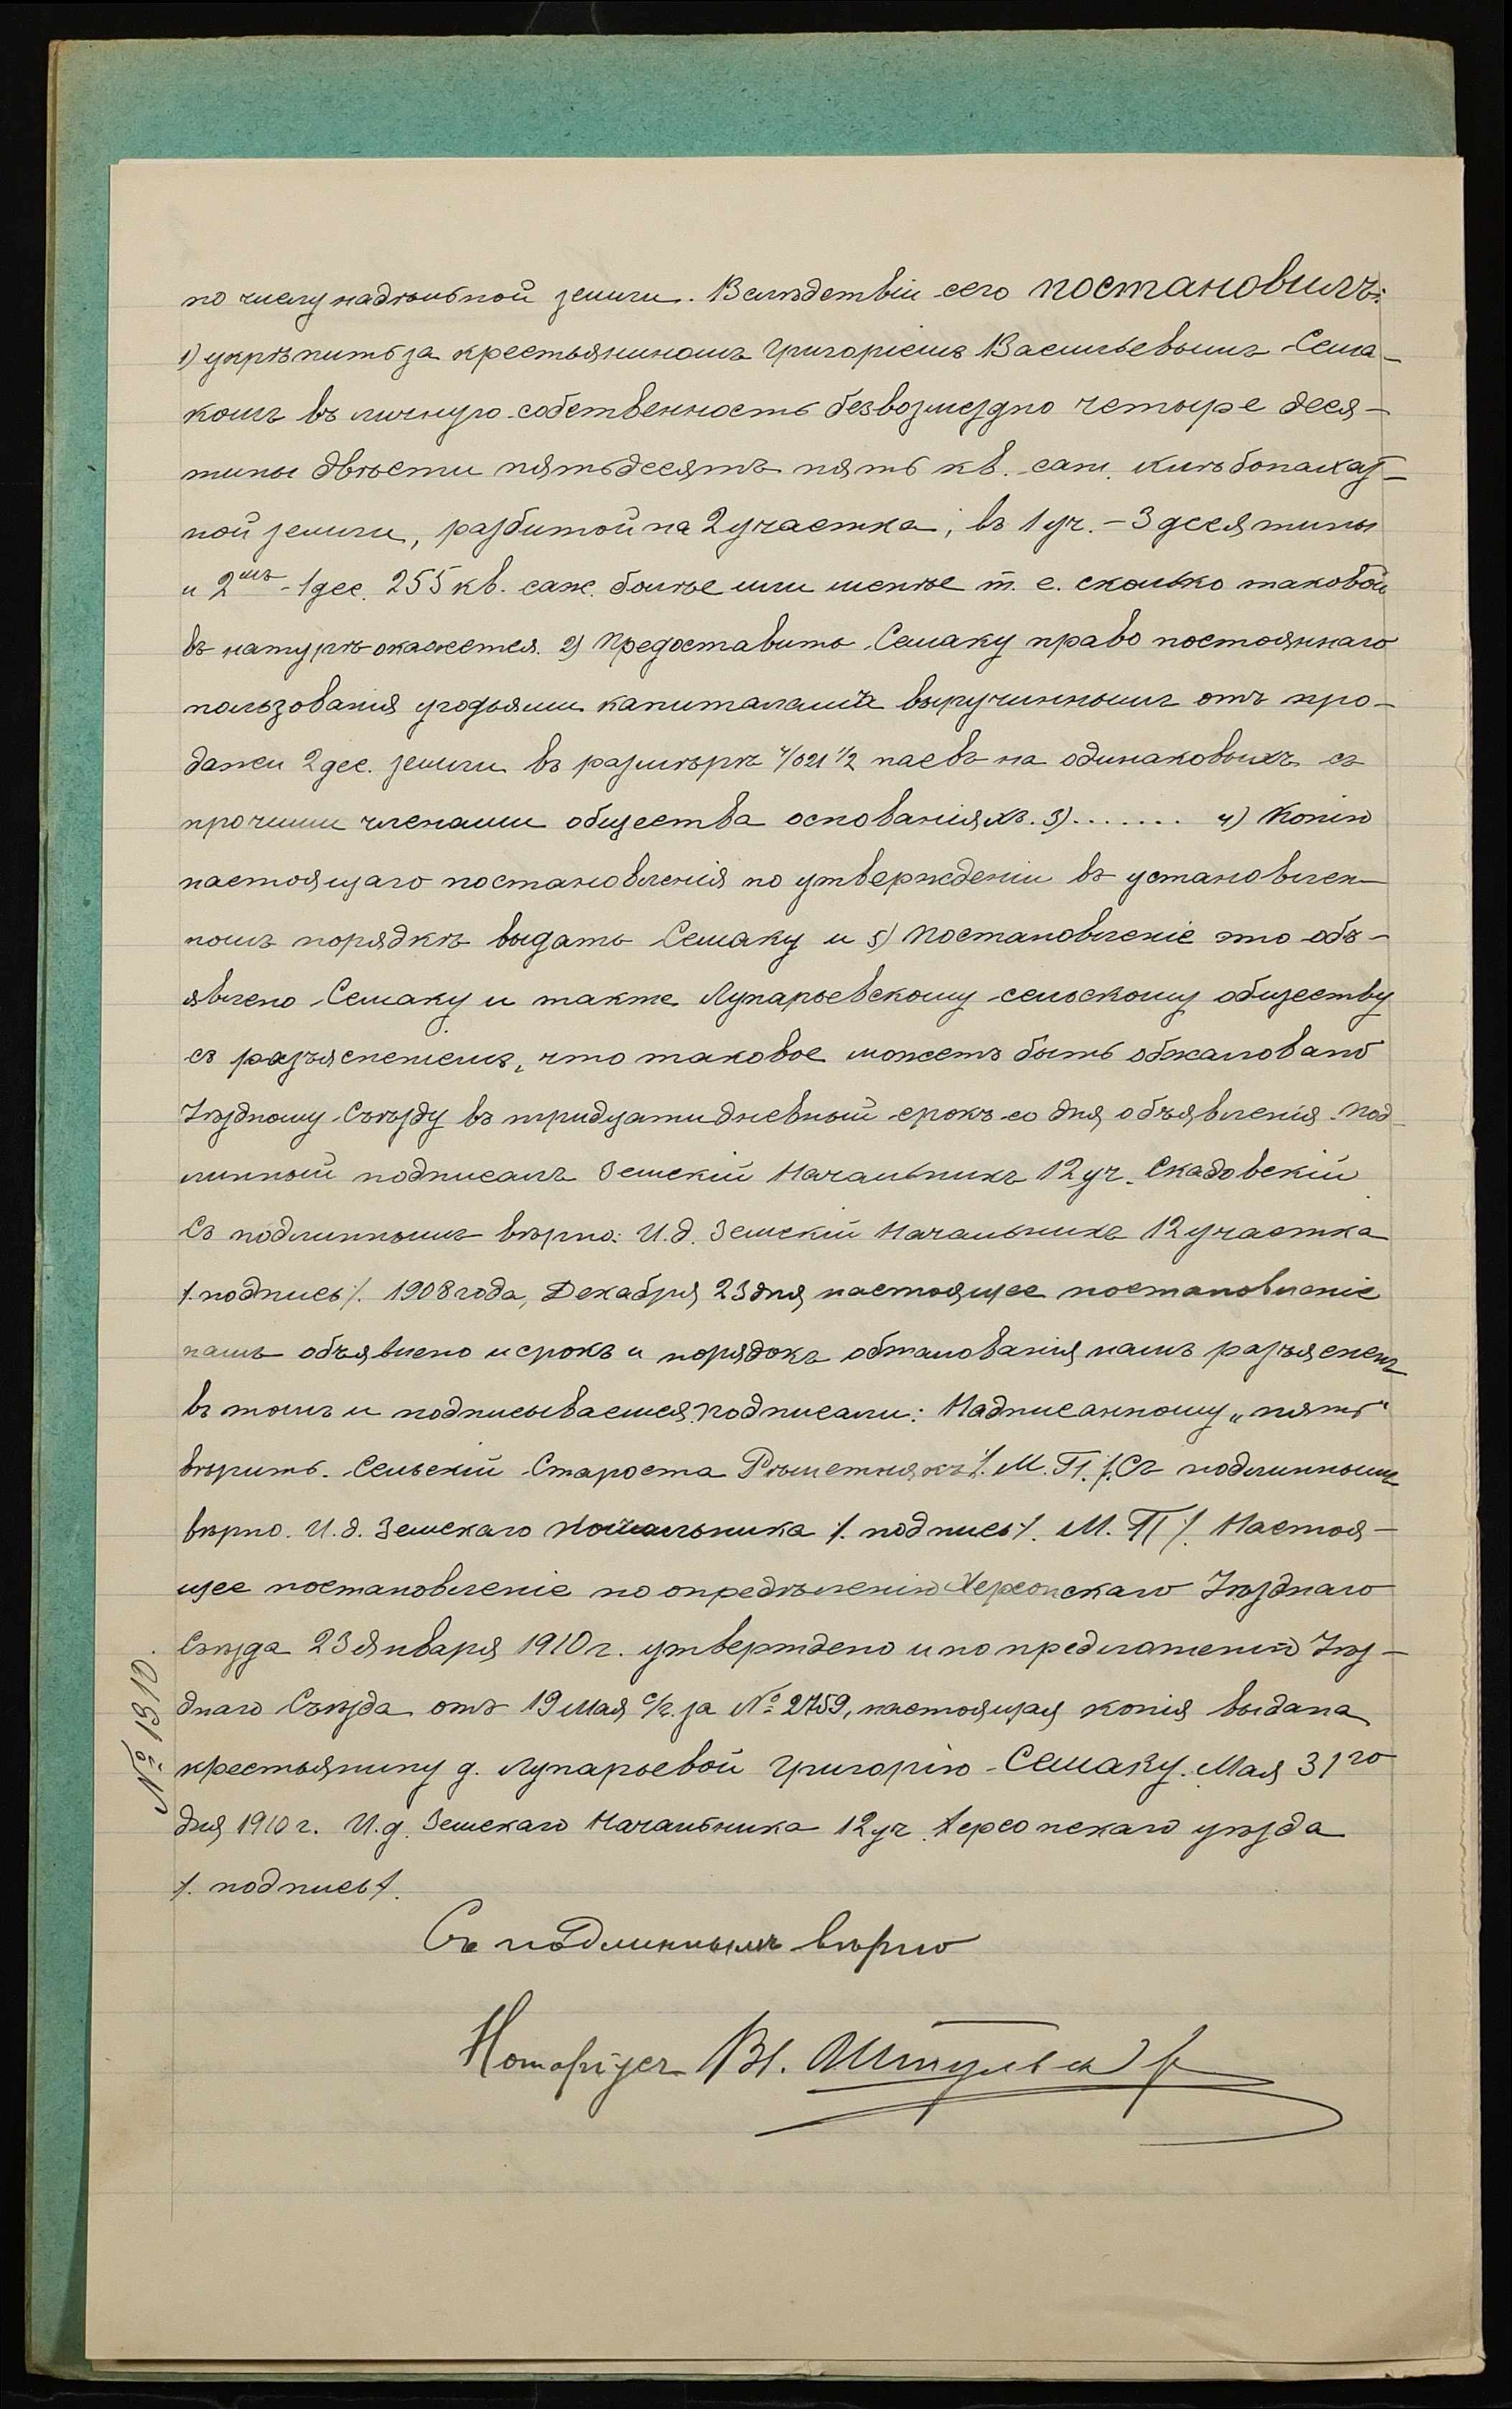 по числу надѣльной земли. Вслѣдствіи сего постановилъ:
1) укрѣпить за крестьяниномъ Григоріемъ Васильевымъ Сема-
комъ въ личную собственность безвозмездно четыре деся-
тины двѣсти пятьдесятъ пять кв. саж. хлѣбопахат-
ной земли, разбитой на 2 участка; въ 1 уч. - 3 десятины
и 2мъ - 1 дес. 255 кв. саж. болѣе или менѣе т. е. сколько таковой
въ натурѣ окажется. 2) Предоставить Семаку право постояннаго
пользованія угодьями капиталами вырученнымъ отъ про-
дажи 2 дес. земли въ размѣрѣ 4/021 1/2 паевъ на одинаковыхъ съ
прочими членами общества основаніяхъ. 3)....... 4) Копію
настоящаго постановленія по утвержденіи въ установлен-
номъ порядкѣ выдать Семаку и 5) Постановленіе это объ-
явлено Семаку и также Лупарьевскому сельскому обществу
съ разъясненіемъ, что таковое можетъ быть обжаловано
Уѣздному Съѣзду въ тридцатидневный срокъ со дня объявленія. Под
линный подписалъ Земскій Начальникъ 12 уч. Скадовскій
Съ подлиннымъ вѣрно: И.д. Земскій Начальника 12 участка
/. подпись /. 1908 года, Декабря 23 дня настоящее постановленіе
намъ объявлено и срокъ и порядокъ обжалованія намъ разъясненъ
въ томъ и подписываемся. Подписали: Надписанному „пять“
вѣрить. Сельскій Староста Рѣшетнякъ /. М. П. /. Съ подлиннымъ
вѣрно. И.д. Земскаго Начальника /. подпись /. М. П /. Настоя-
щее постановленіе по опредѣленію Херсонскаго Уѣзднаго
Съѣзда 23 Января 1910 г. утверждено и по предложенію Уѣз-
днаго Съѣзда отъ 19 Мая с/г. за № 2759, настоящая копія выдана
крестьянину д. Лупарьевой Григорію Семаку. Мая 31го
дня 1910 г. И.д. Земскаго Начальника 12 уч. Херсонскаго уѣзда
/. подпись /.
№ 1310.
Съ подлиннымъ вѣрно
Нотаріусъ Вл.